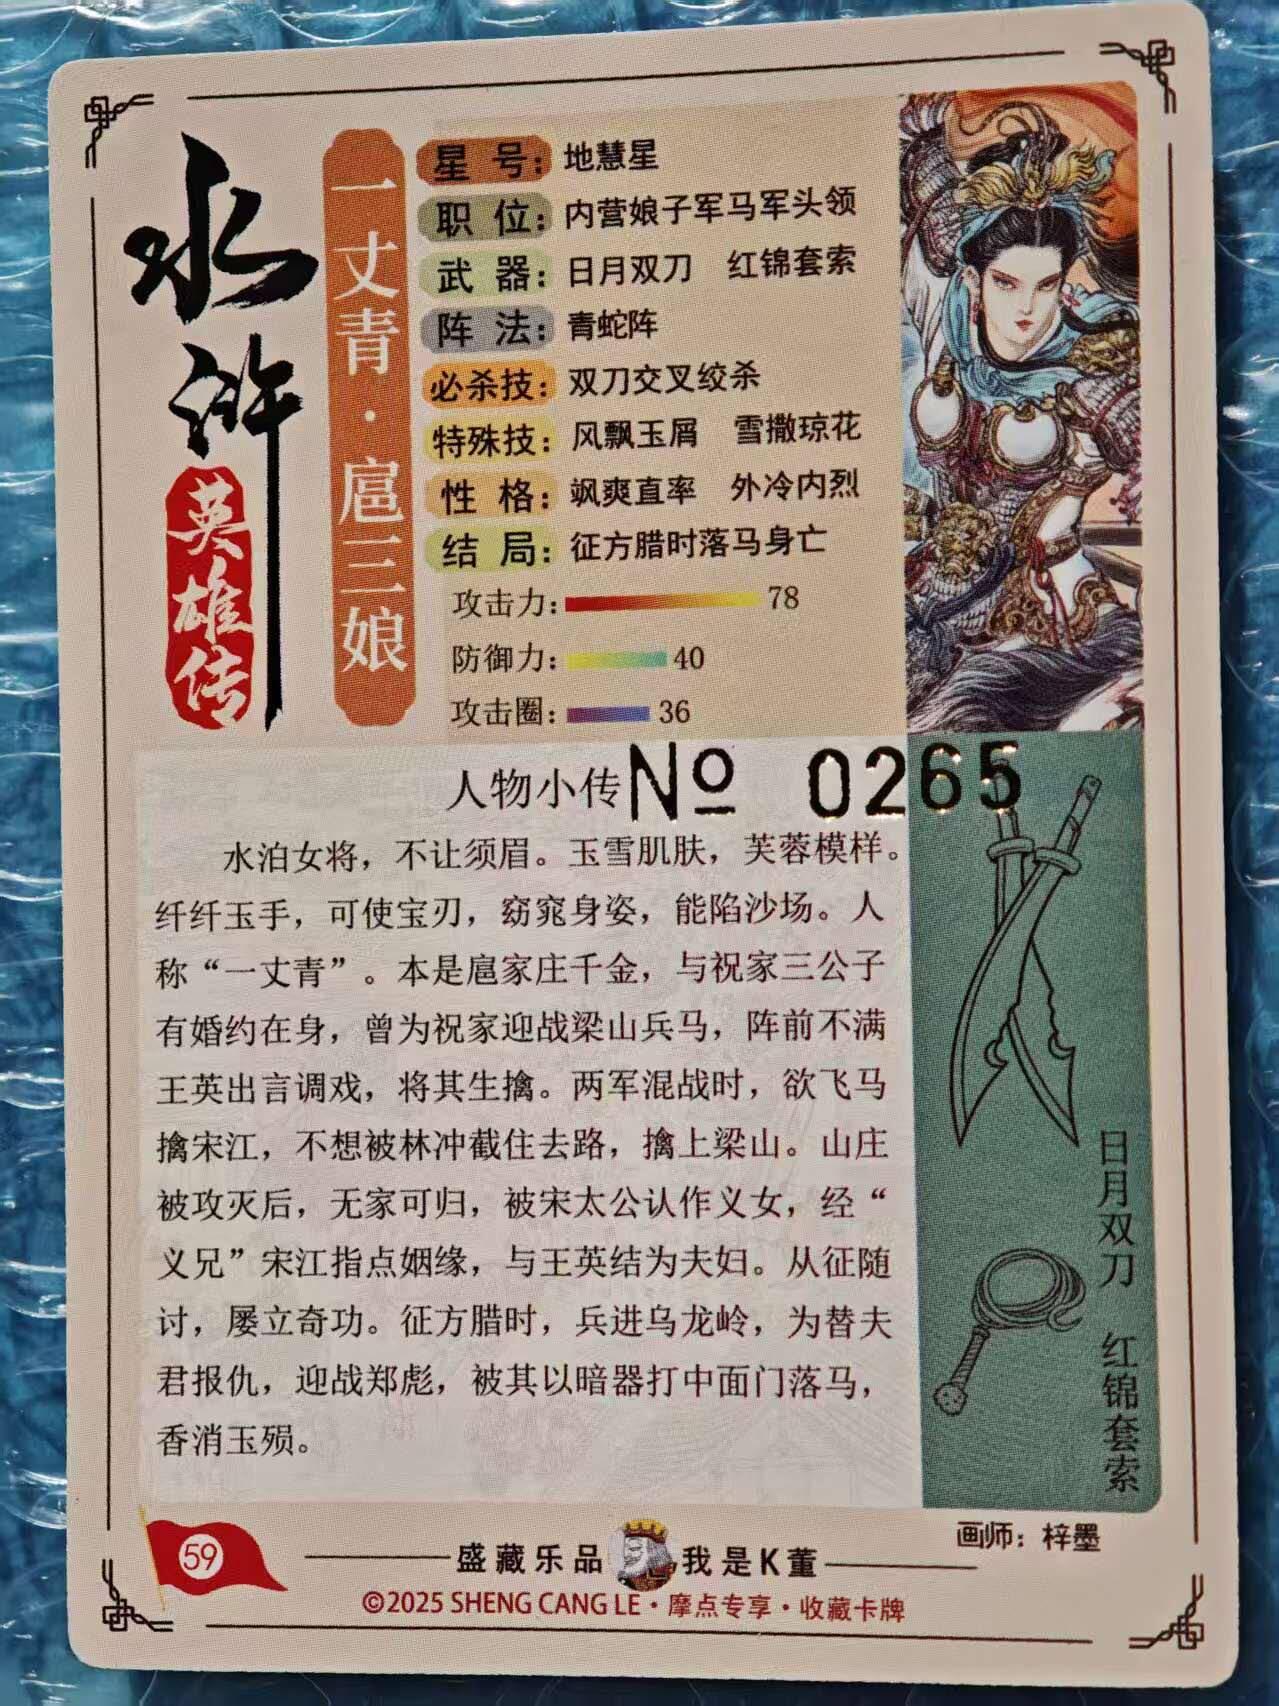 水浒
英雄传
一丈青·扈三娘
星号：地慧星
职位：内营娘子军马军头领
武器：日月双刀 红锦套索
阵法：青蛇阵
必杀技：双刀交叉绞杀
特殊技：风飘玉屑 雪撒琼花
性格：飒爽直率 外冷内烈
结局：征方腊时落马身亡
攻击力：78
防御力：40
攻击圈：36
人物小传 № 0265
水泊女将，不让须眉。玉雪肌肤，芙蓉模样。
纤纤玉手，可使宝刃，窈窕身姿，能陷沙场。人
称“一丈青”。本是扈家庄千金，与祝家三公子
有婚约在身，曾为祝家迎战梁山兵马，阵前不满
王英出言调戏，将其生擒。两军混战时，欲飞马
擒宋江，不想被林冲截住去路，擒上梁山。山庄
被攻灭后，无家可归，被宋太公认作义女，经“
义兄”宋江指点姻缘，与王英结为夫妇。从征随
讨，屡立奇功。征方腊时，兵进乌龙岭，为替夫
君报仇，迎战郑彪，被其以暗器打中面门落马，
香消玉殒。
日月双刀 红锦套索
画师：梓墨
59
盛藏乐品 我是K董
©2025 SHENG CANG LE·摩点专享·收藏卡牌